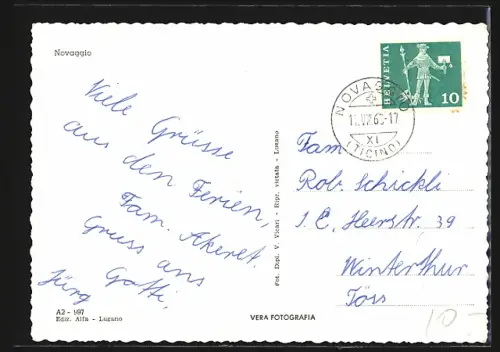 Novaggio
Viele Grüsse
aus den Ferien,
Fam. Akeret.
Gruss ans
Gotti,
Jürg
A2 - 997
Ediz. Alfa - Lugano
Fot. Dipl. V. Vicari - Ripr. vietata - Lugano
VERA FOTOGRAFIA
HELVETIA
10
NOVAGGIO
XI
(TICINO)
Fam
Rob. Schickli
Heerstr. 39
Winterthur
Töss
10.-